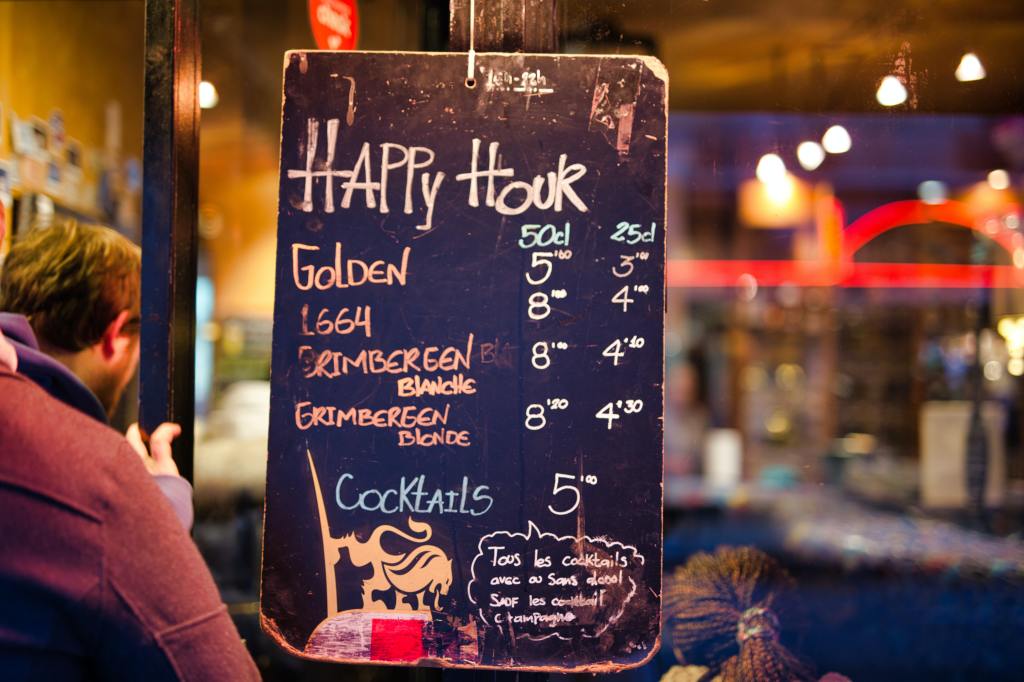 16h-22h
HAPPy HOUR
50cl 25cl
GOLDEN 5'00 3'00
1664 8'00 4'00
GRIMBERGEN 8'00 4'10
BLANCHE
GRIMBERGEN 8'20 4'30
BLONDE
COCKtAILS 5'00
Tous les cocktails
avec ou sans alcool
SAUF les cocktail
Champagne